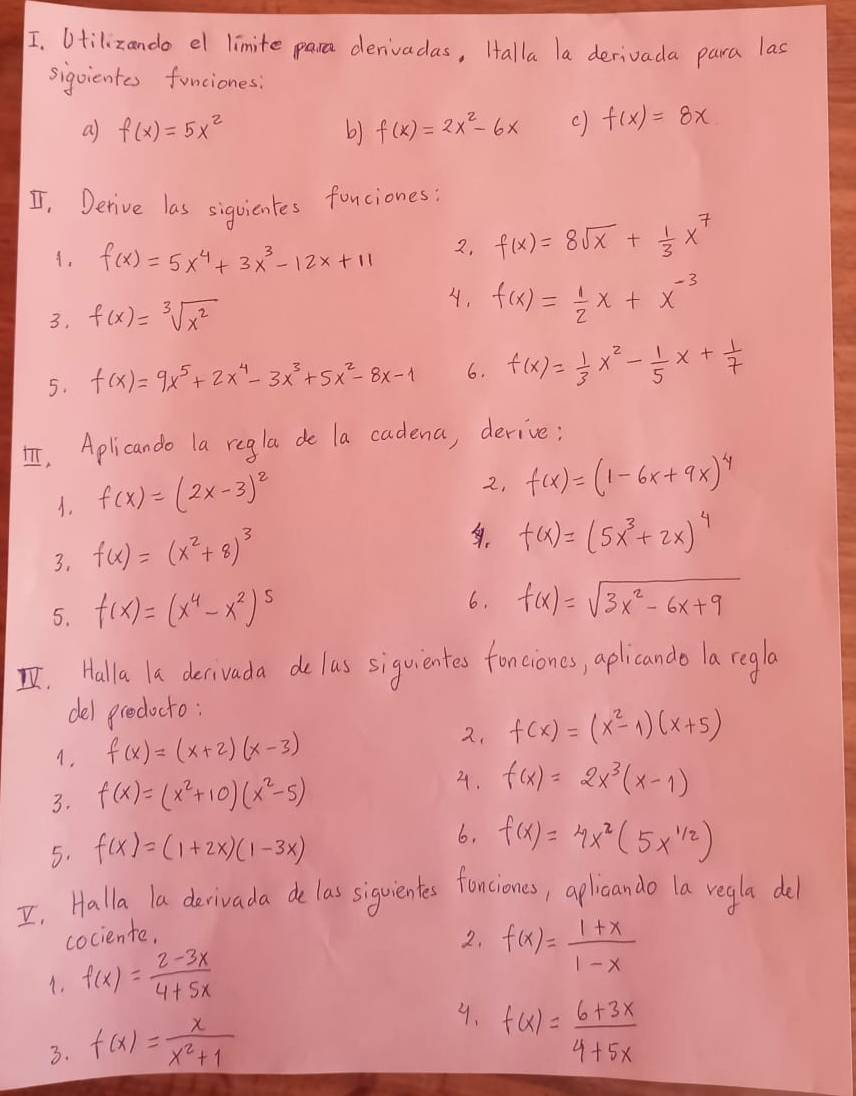 I. Utilizando el límite para derivadas, Halla la derivada para las
siguientes funciones:
a) f(x) = 5x²
b) f(x) = 2x² - 6x
c) f(x) = 8x
II. Derive las siguientes funciones:
1. f(x) = 5x⁴ + 3x³ - 12x + 11
2. f(x) = 8√x + 1/3 x⁷
3. f(x) = ∛(x²)
4. f(x) = 1/2 x + x⁻³
5. f(x) = 9x⁵ + 2x⁴ - 3x³ + 5x² - 8x - 1
6. f(x) = 1/3 x² - 1/5 x + 1/7
III. Aplicando la regla de la cadena, derive:
1. f(x) = (2x-3)²
2. f(x) = (1-6x+9x)⁴
3. f(x) = (x²+8)³
4. f(x) = (5x³+2x)⁴
5. f(x) = (x⁴-x²)⁵
6. f(x) = √(3x²-6x+9)
IV. Halla la derivada de las siguientes funciones, aplicando la regla
del producto:
1. f(x) = (x+2)(x-3)
2. f(x) = (x²-1)(x+5)
3. f(x) = (x²+10)(x²-5)
4. f(x) = 2x³(x-1)
5. f(x) = (1+2x)(1-3x)
6. f(x) = 4x²(5x^1/2)
V. Halla la derivada de las siguientes funciones, aplicando la regla del
cociente.
1. f(x) = (2-3x)/(4+5x)
2. f(x) = (1+x)/(1-x)
3. f(x) = x/(x²+1)
4. f(x) = (6+3x)/(4+5x)